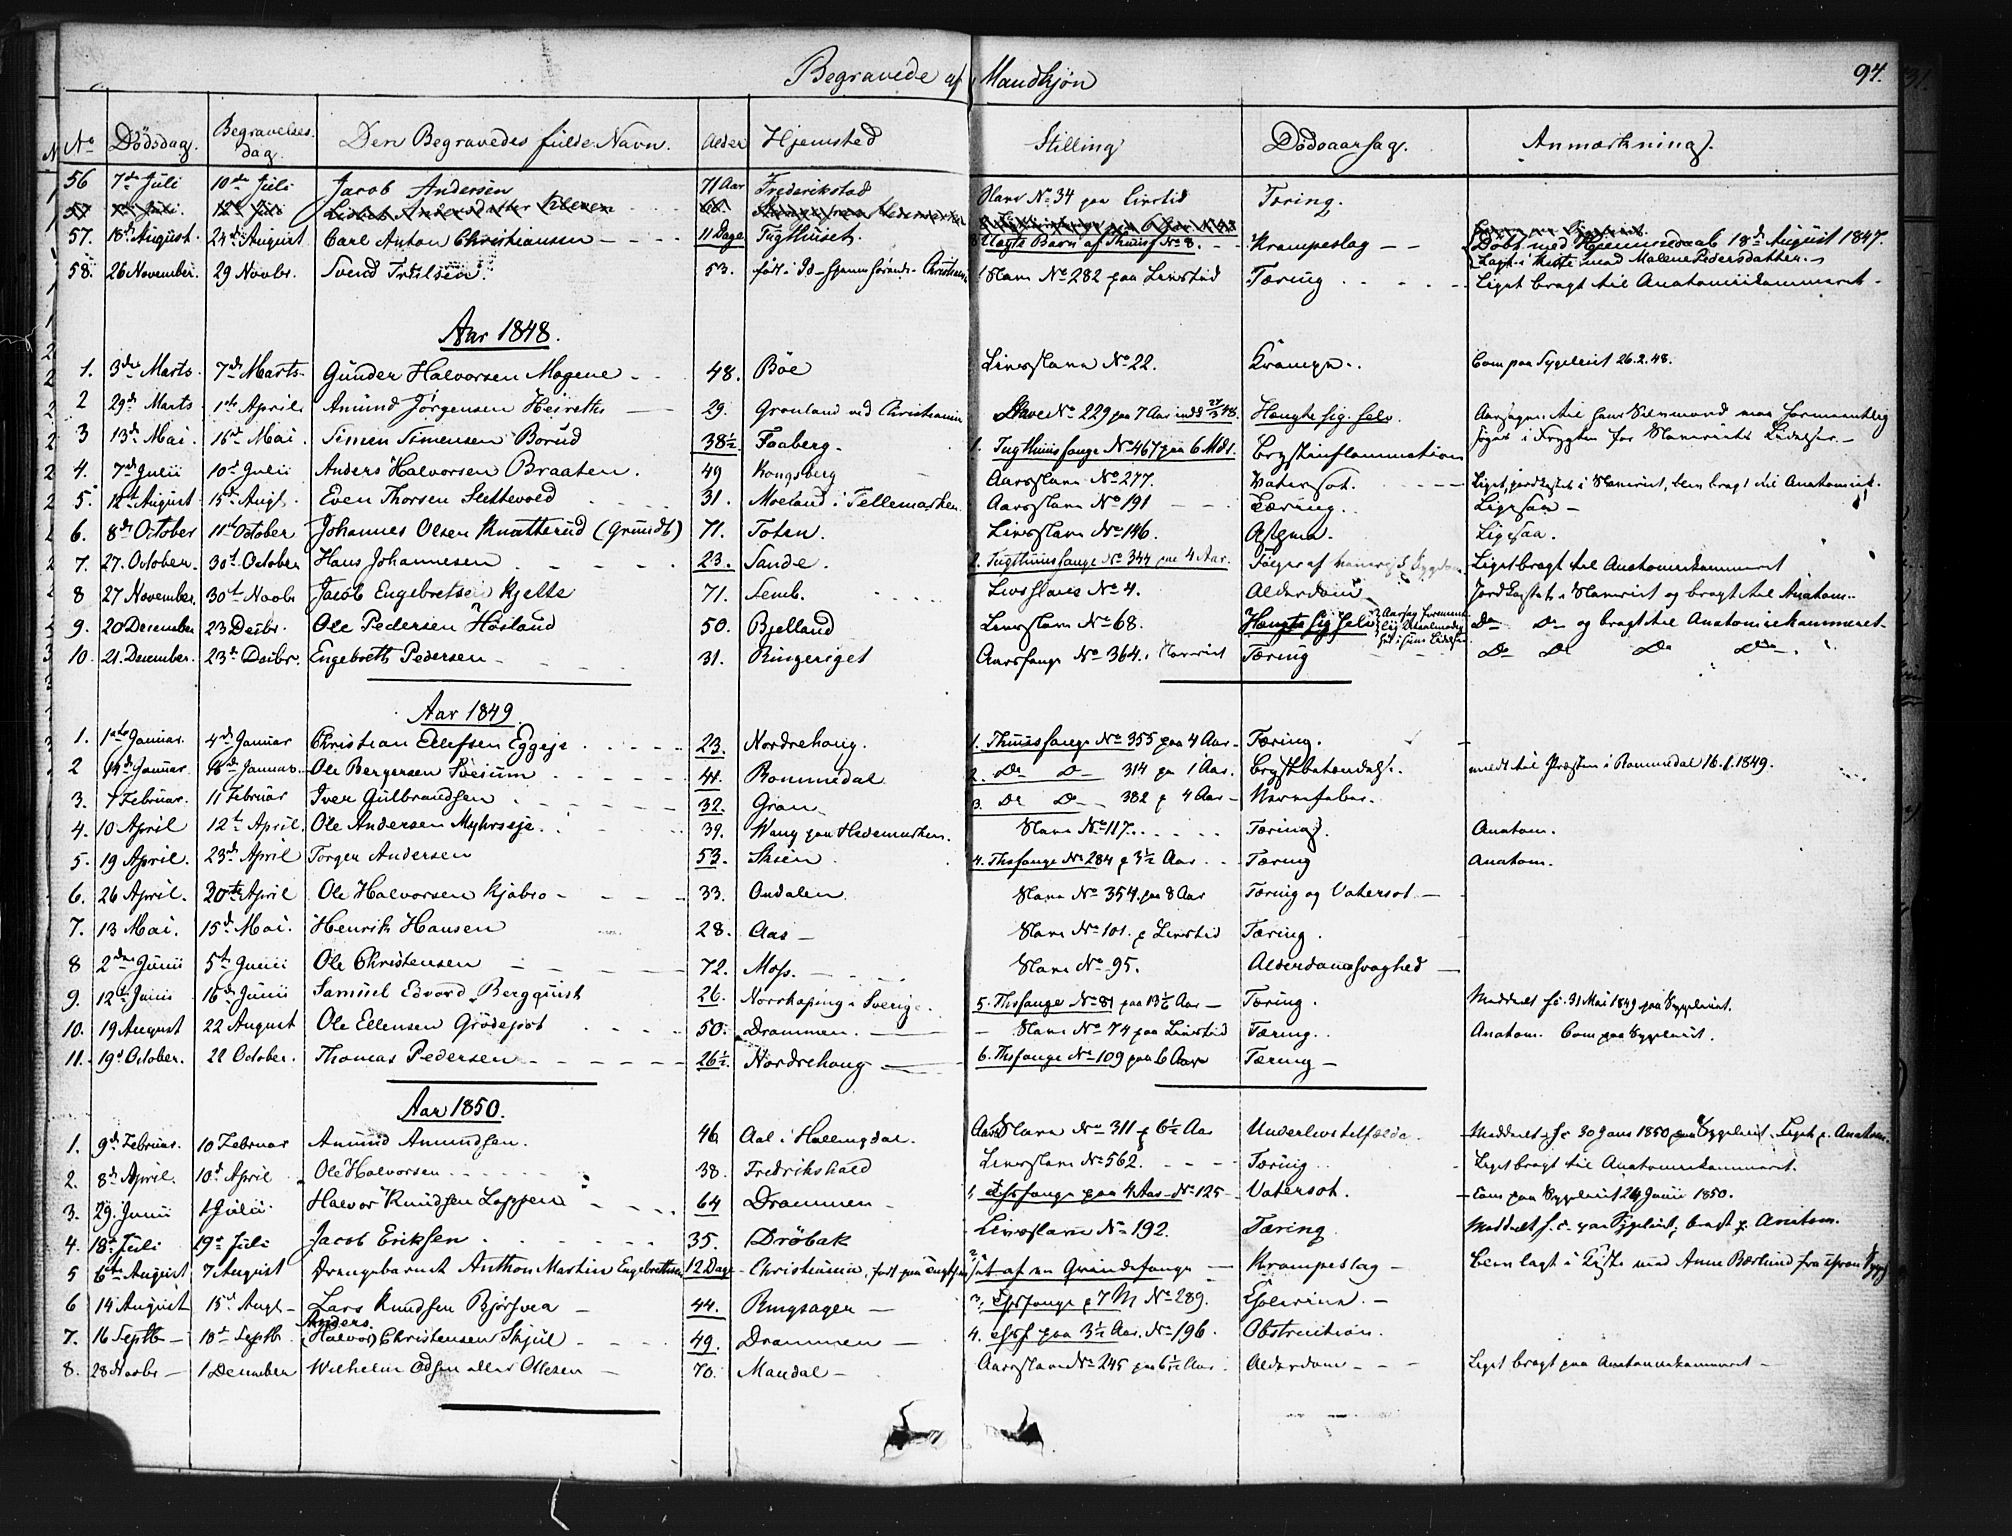 Begravede af Mandkjøn 94.
No Dödsdag. Begravelses dag. Den Begravedes fulde Navn. Alder Hjemsted Stilling Dödsaarsag. Anmærkning.
56 7de Juli 10de Juli Jacob Andersen 71 Aar Frederikstad Slave No 34 paa Livstid Tæring.
57. 18de August. 24de August Carl Anton Christiansen 11 Dage Tugthuset. Uægte Barn af Thuusf No 8. Krampeslag Döbt med Hjemmedaab 18de August 1847. Lagt i Kiste med Malene Pedersdatter.
58. 26 November. 29 Novbr. Svend Truelsen. 53. født i Id Slave No 282 paa Livstid Tæring Liget bragt til Anatomiekammeret.
Aar 1848.
1. 3de Marts. 7de Marts Gunder Halvorsen Mogene 48. Böe Livsslave No 22. Krampe. Kom paa Sygeleiet 26.2.48.
2 29de Marts 1ste April Amund Jörgensen Heireths 29. Grönland ved Christiania Slave No 229 paa 7 Aar Hængte sig selv. Aarsagen til hans Selvmord maa formeentlig
3 13de Mai. 16de Mai. Simen Simensen Borud 38½ Faaberg. 1. Tugthuusfange No 467 paa 6 Mdr. Brystinflammation søges i Frygten for Slaveriets Lidelser.
4. 7de Julii 10de Julii Anders Halvorsen Braaten. 49 Kongsberg Aarsslave No 277. Vatersot. Liget jordfæstet i Slaveriet, blev bragt til Anatomiet.
5. 12te August 15de Augt. Even Thorsen Slettevold 31. Moeland i Tellemarken Aarsslave No 191 Tæring. Ligesaa
6. 8de October 11te October Johannes Olsen Knatterud (Grundt) 71. Toten. Livsslave No 146. Asthma. Ligesaa.
7. 27. October. 30te October Hans Johannesen 23. Sande. 2. Tugthuusfange No 344 paa 4 Aar. Følger af Sygdom Liget bragt til Anatomiekammeret
8 27 November. 30te Novbr Jacob Engebretsen Kjelte 71. Semb. Livsslave No 4. Alderdom Jordfæstet i Slaveriet og bragt til Anatom.
9. 20 December 23 Decbr. Ole Pedersen Hösland 50. Bjelland Livsslave No 68. Hængte sig selv Do Do og bragt til Anatomiekammeret
10. 21. December. 23de Decbr. Engebreth Pedersen 31. Ringeriget Aarsfange No 364. Slaveriet Tæring Do Do Do Do
Aar 1849.
1. 1ste Januar. 4de Januar Christian Ellefsen Eggeje 23. Nordrehoug. 1. Thuusfange No 355 paa 4 Aar Tæring.
2 14de Januar 18de Januar Ole Bergersen Sveium 41. Rommedal 2. Do Do 314 pa 1 Aar. Brystbetændelse. meldt til Præsten i Rommedal 16.1.1849.
3. 7 Februar. 11 Februar Iver Gulbrandsen 32. Gran. 3. Do Do 382 p 4 Aar Nervefeber.
4. 10 April 12te April. Ole Andersen Myhrseje 39. Wang paa Hedemarken. Slave No 117. Tæring. Anatom.
5. 19 April. 23de April Torger Andersen 53. Skien. 4. Thsfange No 284 p 3½ Aar. Tæring Anatom.
6. 26 April. 30te April Ole Halvorsen Kjöbro 33. Oudalen. Slave No 354. paa 8 Aar Tæring og Vatersot
7. 13 Mai. 15de Mai. Henrik Hansen 28. Aas Slave No 101. p Livstid Tæring.
8 2den Junii 5te Junii Ole Christensen 72. Moss. Slave No 95. Alderdomssvaghed
9. 12te Junii 16de Junii Samuel Edvard Bergquist 26. Norrkøping i Sverige. 5. Thsfange No 81 paa 13 1/6 Aar Tæring. Meddeelt sc. 31 Mai 1849 paa Sygeleiet.
10. 19 August 22 August Ole Ellensen Grödejord 50. Drammen. Slave No 74 paa Livstid Tæring. Anatom. Kom paa Sygeleiet.
11. 19de October. 22 October. Thomas Pedersen 26½. Nordrehoug 6. Thsfange No 109 paa 6 Aar Tæring
Aar 1850.
1. 9de Februar. 10 Februar Amund Amundsen. 46 Aal i Hallingdal. Aarsslave No 311 p 6½ Aar Underlivstilfælde. Meddeelt sc 30 Jans 1850 paa Sygeleiet. Liget p. Anatom.
2. 8de April. 10de April Ole Halvorsen 38. Fredrikshald Livsslave No 562. Tæring Liget bragt til Anatomiekammeret.
3. 29. Junii 1 Julii. Halvor Knudsen Loppen 64 Drammen 1. Thsfange paa 4 Aar No 125 Vatersot. Kom paa Sygeleiet 24 Junii 1850.
4. 18de Juli 19de Juli Jacob Eriksen 35. Dröbak Livsslave No 192. Tæring. Meddeelt s. c. paa Sygeleiet; bragt p. Anatom.
5 6te August 7 August Drengebarnet Anthon Martin Engebrethsen 12 Dage Christiania, født paa Tugthuset 2. af en Qvindefange Krampeslag Blev lagt i Kiste med Anne Bærlund
6 14 August 15de Augt Lars Knudsen Björsvea 44. Ringsager 3. Thsfange p 7 M No 289. Cholerine.
7. 16 Septb 18de Septb Anders (Halvor) Christensen Skjul 49. Drammen 4. Thsf paa 3½ Aar. No 196. Obstruction.
8. 28 Novbr 1 December Wilhelm Odsen eller Ottesen 70. Mandal Aarsslave No 245 paa 6½ Aar. Alderdom Liget bragt paa Anatomiekammeret